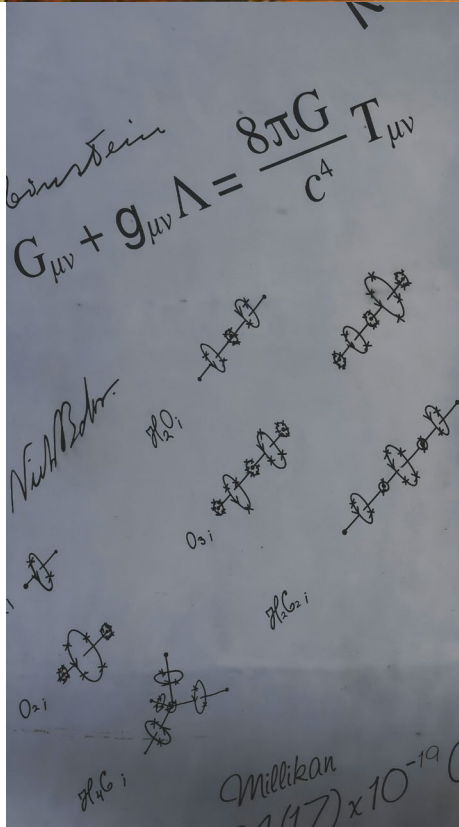 Einstein
Gμν + gμνΛ = 8πG / c⁴ Tμν
H₂O;
Niels Bohr.
O₃;
H₂C₂;
O₂;
H₄C;
Millikan
(17) x 10⁻¹⁹ (